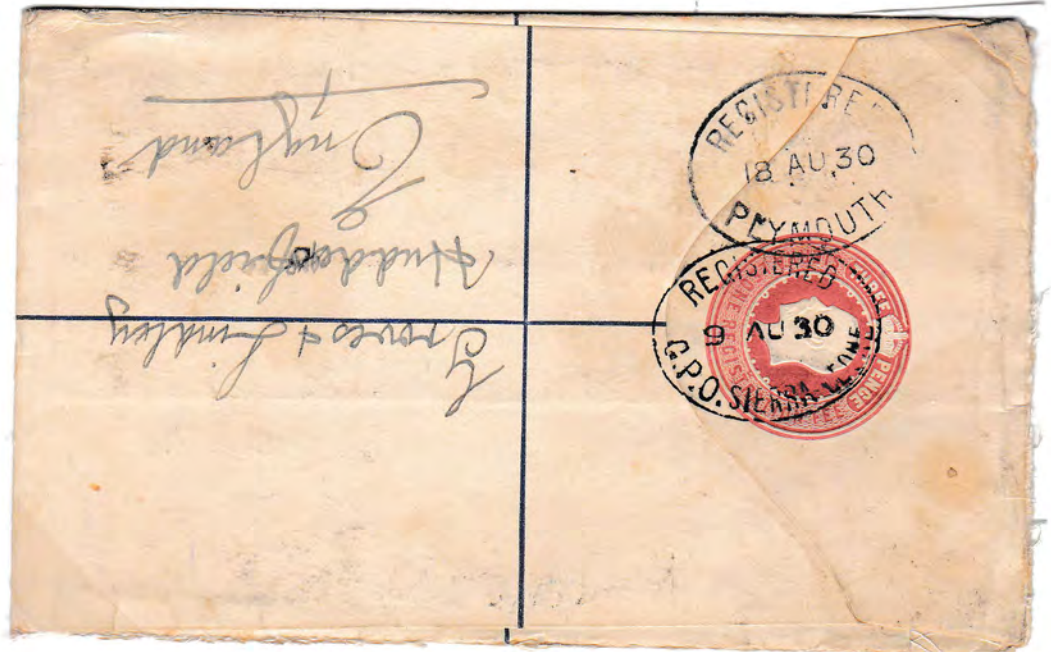 Groves & Lindley
Huddersfield
England
REGISTERED
18 AU 30
PLYMOUTH
REGISTERED
9 AU 30
G.P.O. SIERRA LEONE
THREE PENCE